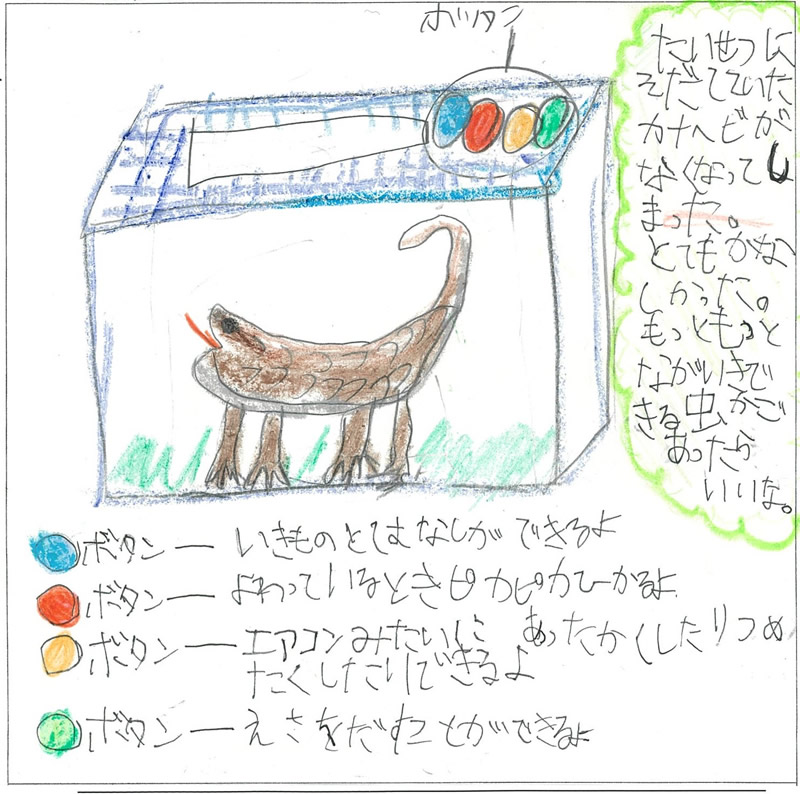 ボツタン
たいせつに
そだてていた
カナヘビが
なくなってし
まった。
とてもかな
しかった。
もっともっと
ながいきで
きる虫かご
あったら
いいな。
ボタン― いきものとてもなしができるよ
ボタン― よわっているときピカピカひーかるよ
ボタン― エアコンみたいに あったかくしたりつめ
たくしたりできるよ
ボタン― えさをだすことができるよ